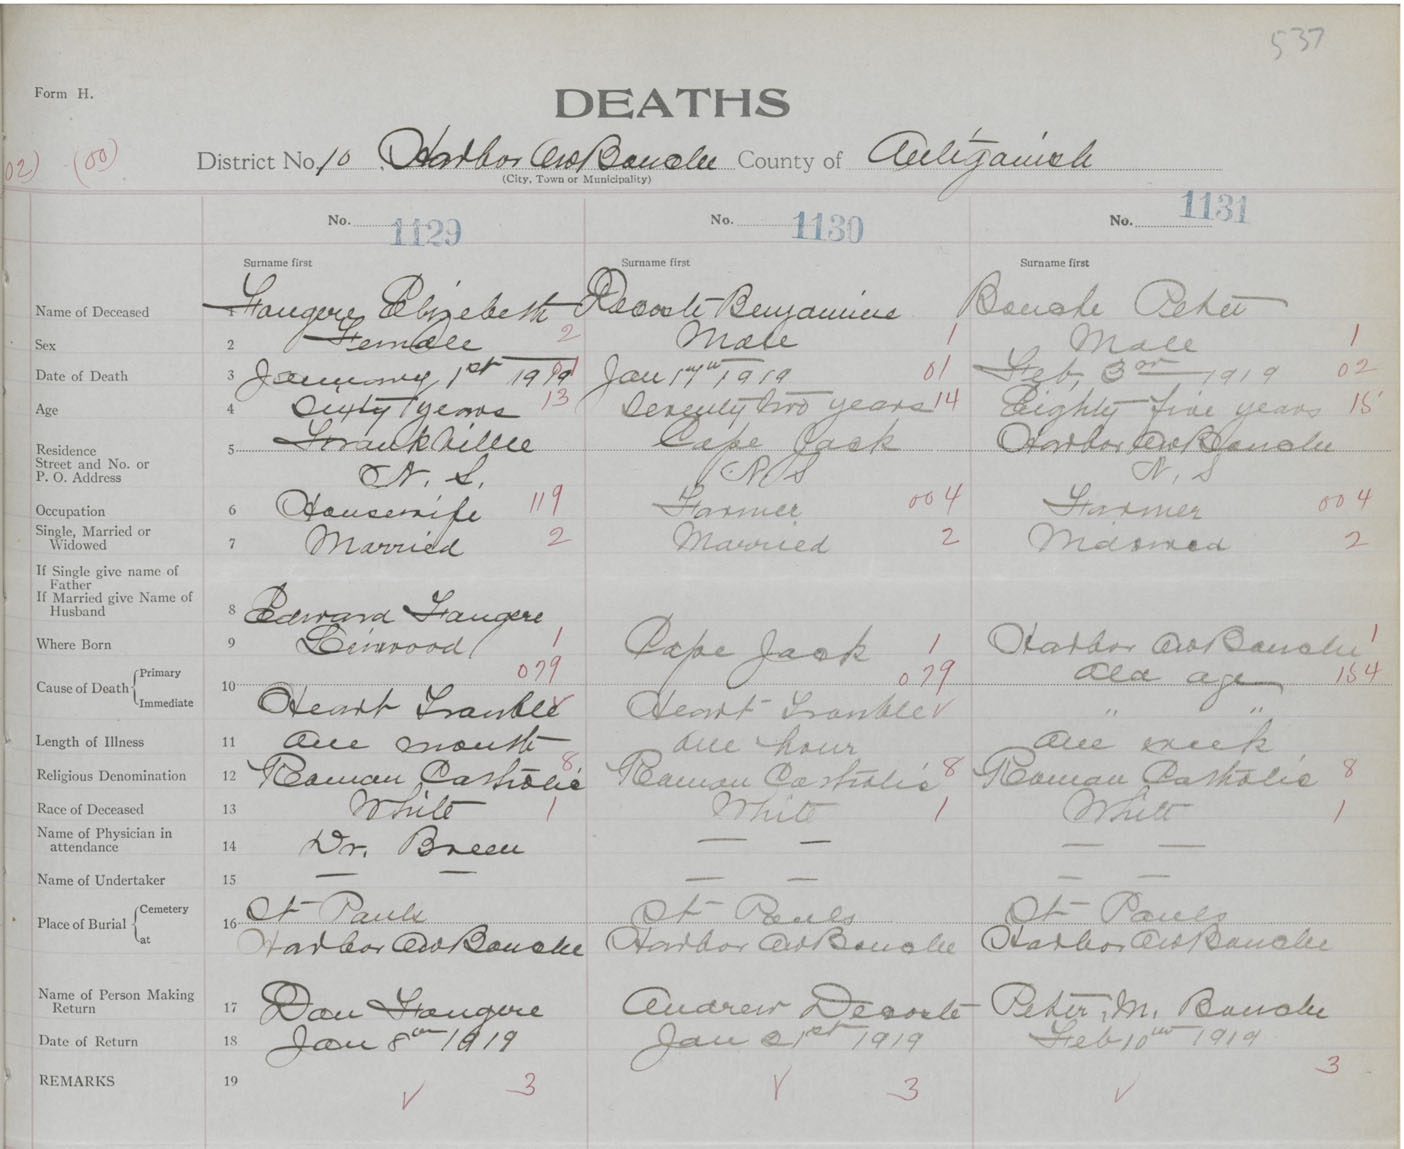 537
Form H.
DEATHS
02) (00) District No. 10 Harbor Au Bouche County of Antigonish
(City, Town or Municipality)
No. 1129 No. 1130 No. 1131
Surname first Surname first Surname first
Name of Deceased 1 Fougere Elizebeth Decoste Benjamine Bouche Peter
Sex 2 Female 2 Male 1 Male 1
Date of Death 3 January 1st 1919 01 Jan 17th 1919 01 Feb, 3rd 1919 02
Age 4 Sixty years 13 Seventy two years 14 Eighty five years 15
Residence
Street and No. or
P. O. Address
5 Frankville Cape Jack Harbor Au Bouche
N. S. N S N, S
Occupation 6 Housewife 119 Farmer 00 4 Farmer 00 4
Single, Married or
Widowed
7 Married 2 Married 2 Widowed 2
If Single give name of
Father
If Married give Name of
Husband
8 Edward Fougere
Where Born 9 Linwood 1 Cape Jack 1 Harbor Au Bouche 1
Cause of Death { Primary 10 079 079 Old age 154
Immediate Heart Trouble Heart Trouble " "
Length of Illness 11 One month One hour One week
Religious Denomination 12 Roman Catholic 8 Roman Catholic 8 Roman Catholic 8
Race of Deceased 13 White 1 White 1 White 1
Name of Physician in
attendance
14 Dr. Breen — — — —
Name of Undertaker 15 — — — — — —
Place of Burial { Cemetery 16 St Pauls St Pauls St Pauls
at Harbor Au Bouche Harbor Au Bouche Harbor Au Bouche
Name of Person Making
Return
17 Dan Fougere Andrew Decoste Peter, M. Bouche
Date of Return 18 Jan 8th 1919 Jan 21st 1919 Feb 10th 1919
REMARKS 19 3 3 3